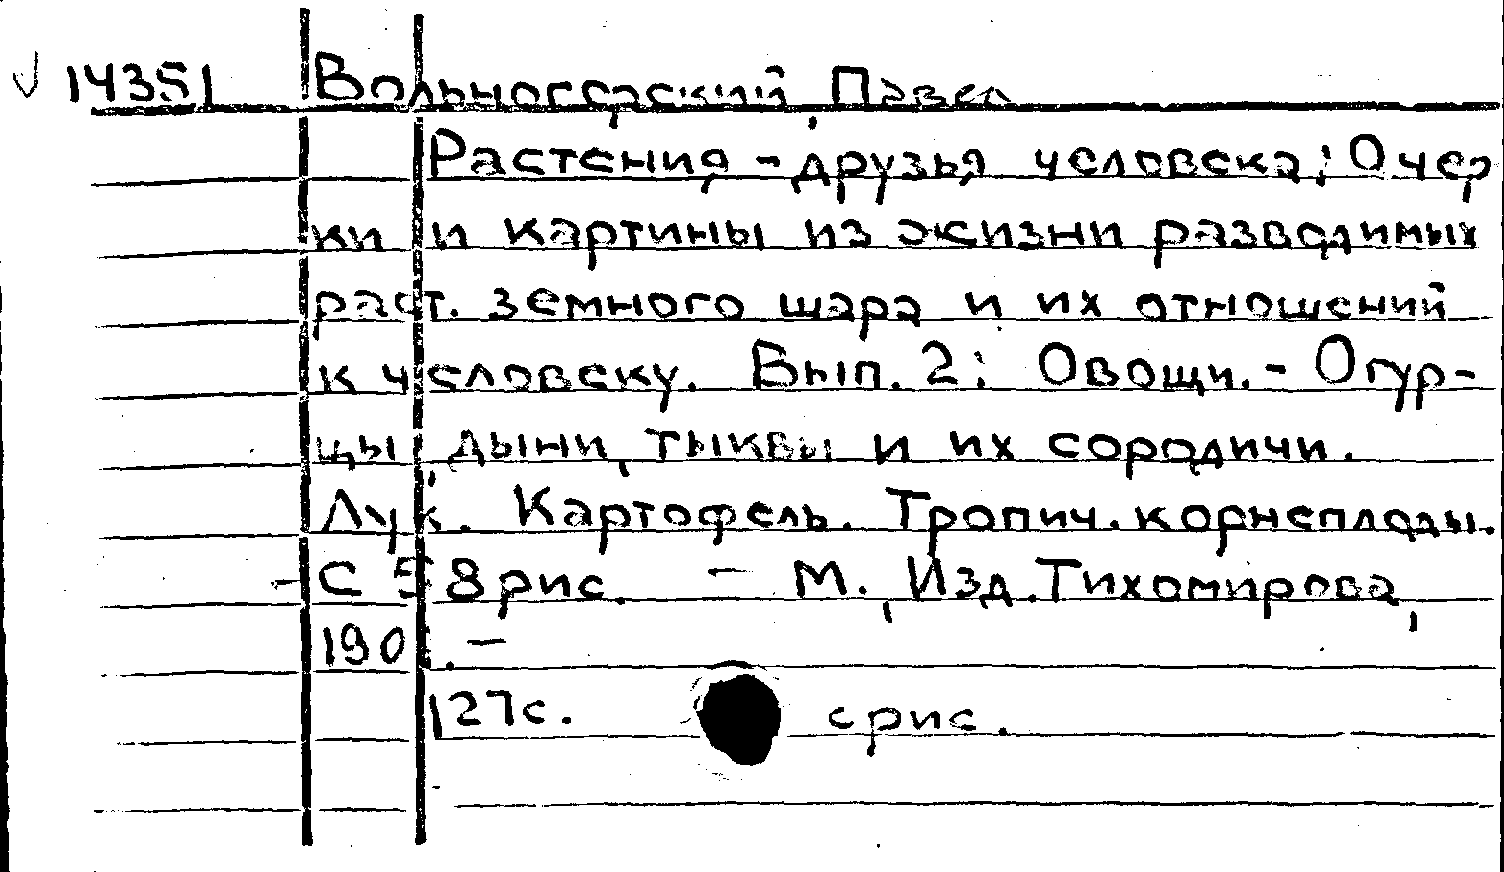 14351 Вольногорский, Павел
Растения - друзья человека; Очер
ки и картины из жизни разводимых
раст. земного шара и их отношений
к человеку. Вып. 2: Овощи. - Огур-
цы, дыни, тыквы и их сородичи.
Лук. Картофель. Тропич. корнеплоды.
- С 58 рис. - М., Изд. Тихомирова,
127с. с рис.